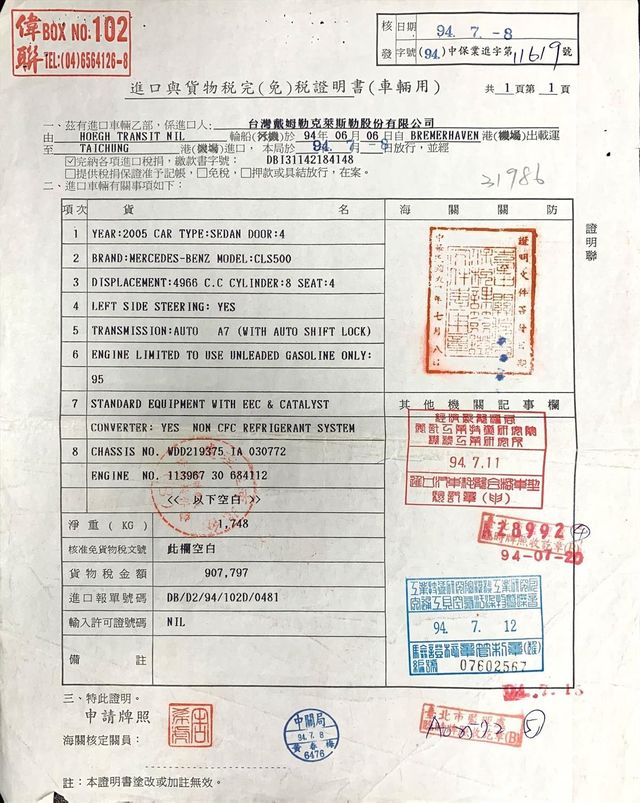 偉聯
BOX NO: 102
TEL:(04)6564126-8
核發
日期 94. 7. -8
字號 (94.)中保業進字第 11619 號
進口與貨物稅完(免)稅證明書(車輛用)
共 1 頁第 1 頁
一、茲有進口車輛乙部，係進口人： 台灣戴姆勒克萊斯勒股份有限公司
由 HOEGH TRANSIT NIL 輪船(班機)於 94年 06月 06日自 BREMERHAVEN 港(機場)出載運
至 TAICHUNG 港(機場)進口，本局於 94. 7. -8 日放行，並經
☑完納各項進口稅捐，繳款書字號： DBI31142184148
□提供稅捐保證准予記帳，□免稅，□押款或具結放行，在案。
31986
二、進口車輛有關事項如下：
項次 貨 名 海 關 關 防
證明聯
1 YEAR:2005 CAR TYPE:SEDAN DOOR:4
2 BRAND:MERCEDES-BENZ MODEL:CLS500
3 DISPLACEMENT:4966 C.C CYLINDER:8 SEAT:4
4 LEFT SIDE STEERING: YES
5 TRANSMISSION:AUTO A7 (WITH AUTO SHIFT LOCK)
6 ENGINE LIMITED TO USE UNLEADED GASOLINE ONLY:
95
7 STANDARD EQUIPMENT WITH EEC & CATALYST
CONVERTER: YES NON CFC REFRIGERANT SYSTEM
8 CHASSIS NO. WDD219375 1A 030772
ENGINE NO. 113967 30 684112
<< 以下空白 >>
其他機關記事欄
94.7.11
28992
94-07-20
淨 重 ( KG ) 1,748
核准免貨物稅文號 此欄空白
貨物稅金額 907,797
進口報單號碼 DB/D2/94/102D/0481
輸入許可證號碼 NIL
備 註
94. 7. 12
編號 07602567
三、特此證明。
申請牌照
海關核定關員：
中關局
94.7.8
黃春梅
6476
臺北市監理處
(B)
5
註：本證明書塗改或加註無效。